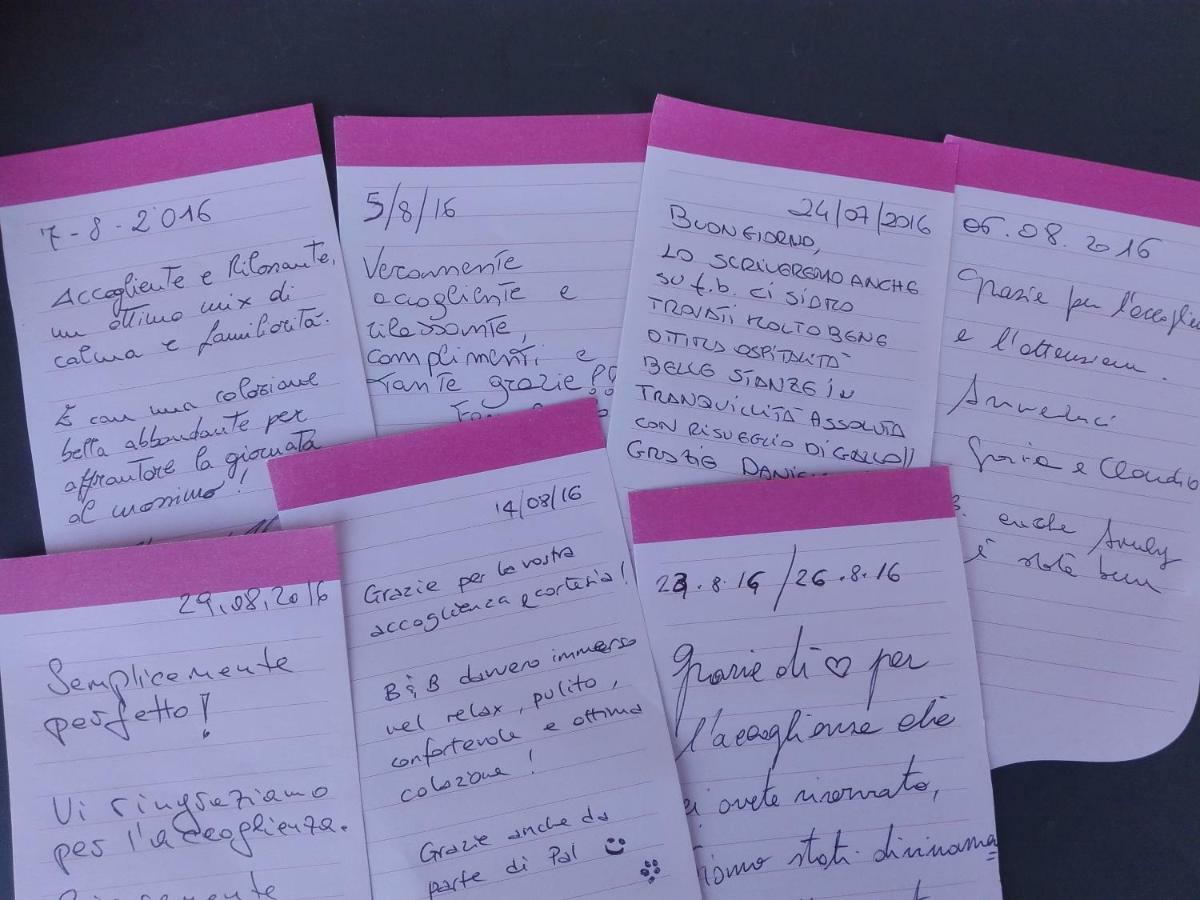 7-8-2016
Accogliente e Rilassante,
un ottimo mix di
calma e familiarità.
E con una colazione
bella abbondante per
affrontare la giornata
al massimo!
5/8/16
Veramente
accogliente e
rilassante,
complimenti e
Tante grazie!
24/07/2016
BUONGIORNO,
LO SCRIVEREMO ANCHE
SU f.b. CI SIAMO
TROVATI MOLTO BENE
OTTIMA OSPITALITÀ
BELLE STANZE IN
TRANQUILLITÀ ASSOLUTA
CON RISVEGLIO DI GALLO!!
GRAZIE
06.08.2016
Grazie per
e l'attenzione.
Arrivederci
e Claudio
anche
è stata bene
29.08.2016
Semplicemente
perfetto!
Vi ringraziamo
per l'accoglienza.
14/08/16
Grazie per la vostra
accoglienza e cortesia!
B&B davvero immerso
nel relax, pulito,
confortevole e ottima
colazione!
Grazie anche da
parte di Pal
23.8.16/26.8.16
Grazie di ♡ per
l'accoglienza che
ci avete riservato,